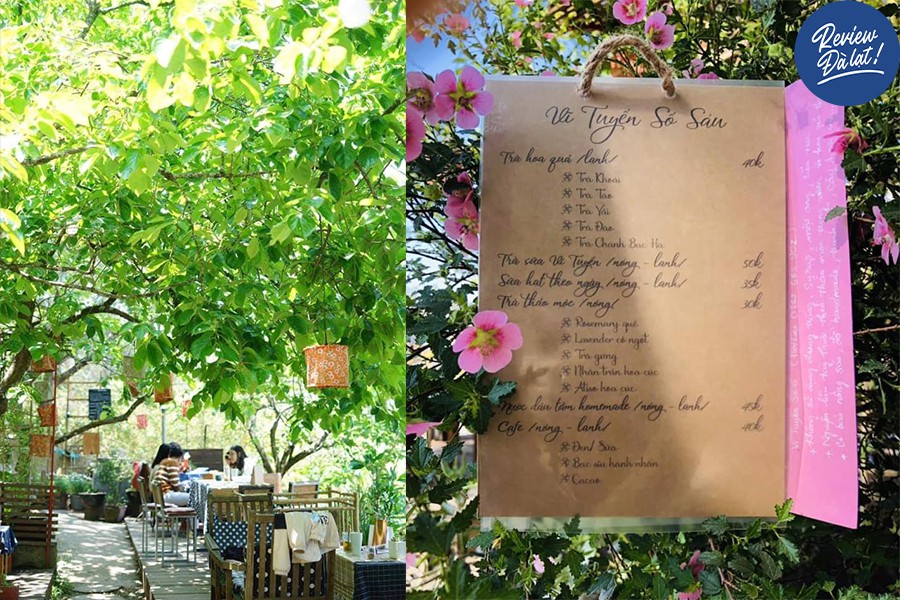 Review
Đà Lạt!
Vĩ Tuyến Số Sáu
Trà hoa quả /lạnh/ 40k
Trà Khoai
Trà Táo
Trà Vải
Trà Đào
Trà Chanh Bạc Hà
Trà sữa Vĩ Tuyến /nóng - lạnh/ 50k
Sữa hạt theo ngày /nóng - lạnh/ 35k
Trà thảo mộc /nóng/ 30k
Rosemary quế
Lavender cỏ ngọt
Trà gừng
Nhân trần hoa cúc
Atiso hoa cúc
Nước dâu tằm homemade /nóng - lạnh/ 45k
Cafe /nóng - lạnh/ 40k
Đen/ Sữa
Bạc xỉu hạnh nhân
Cacao